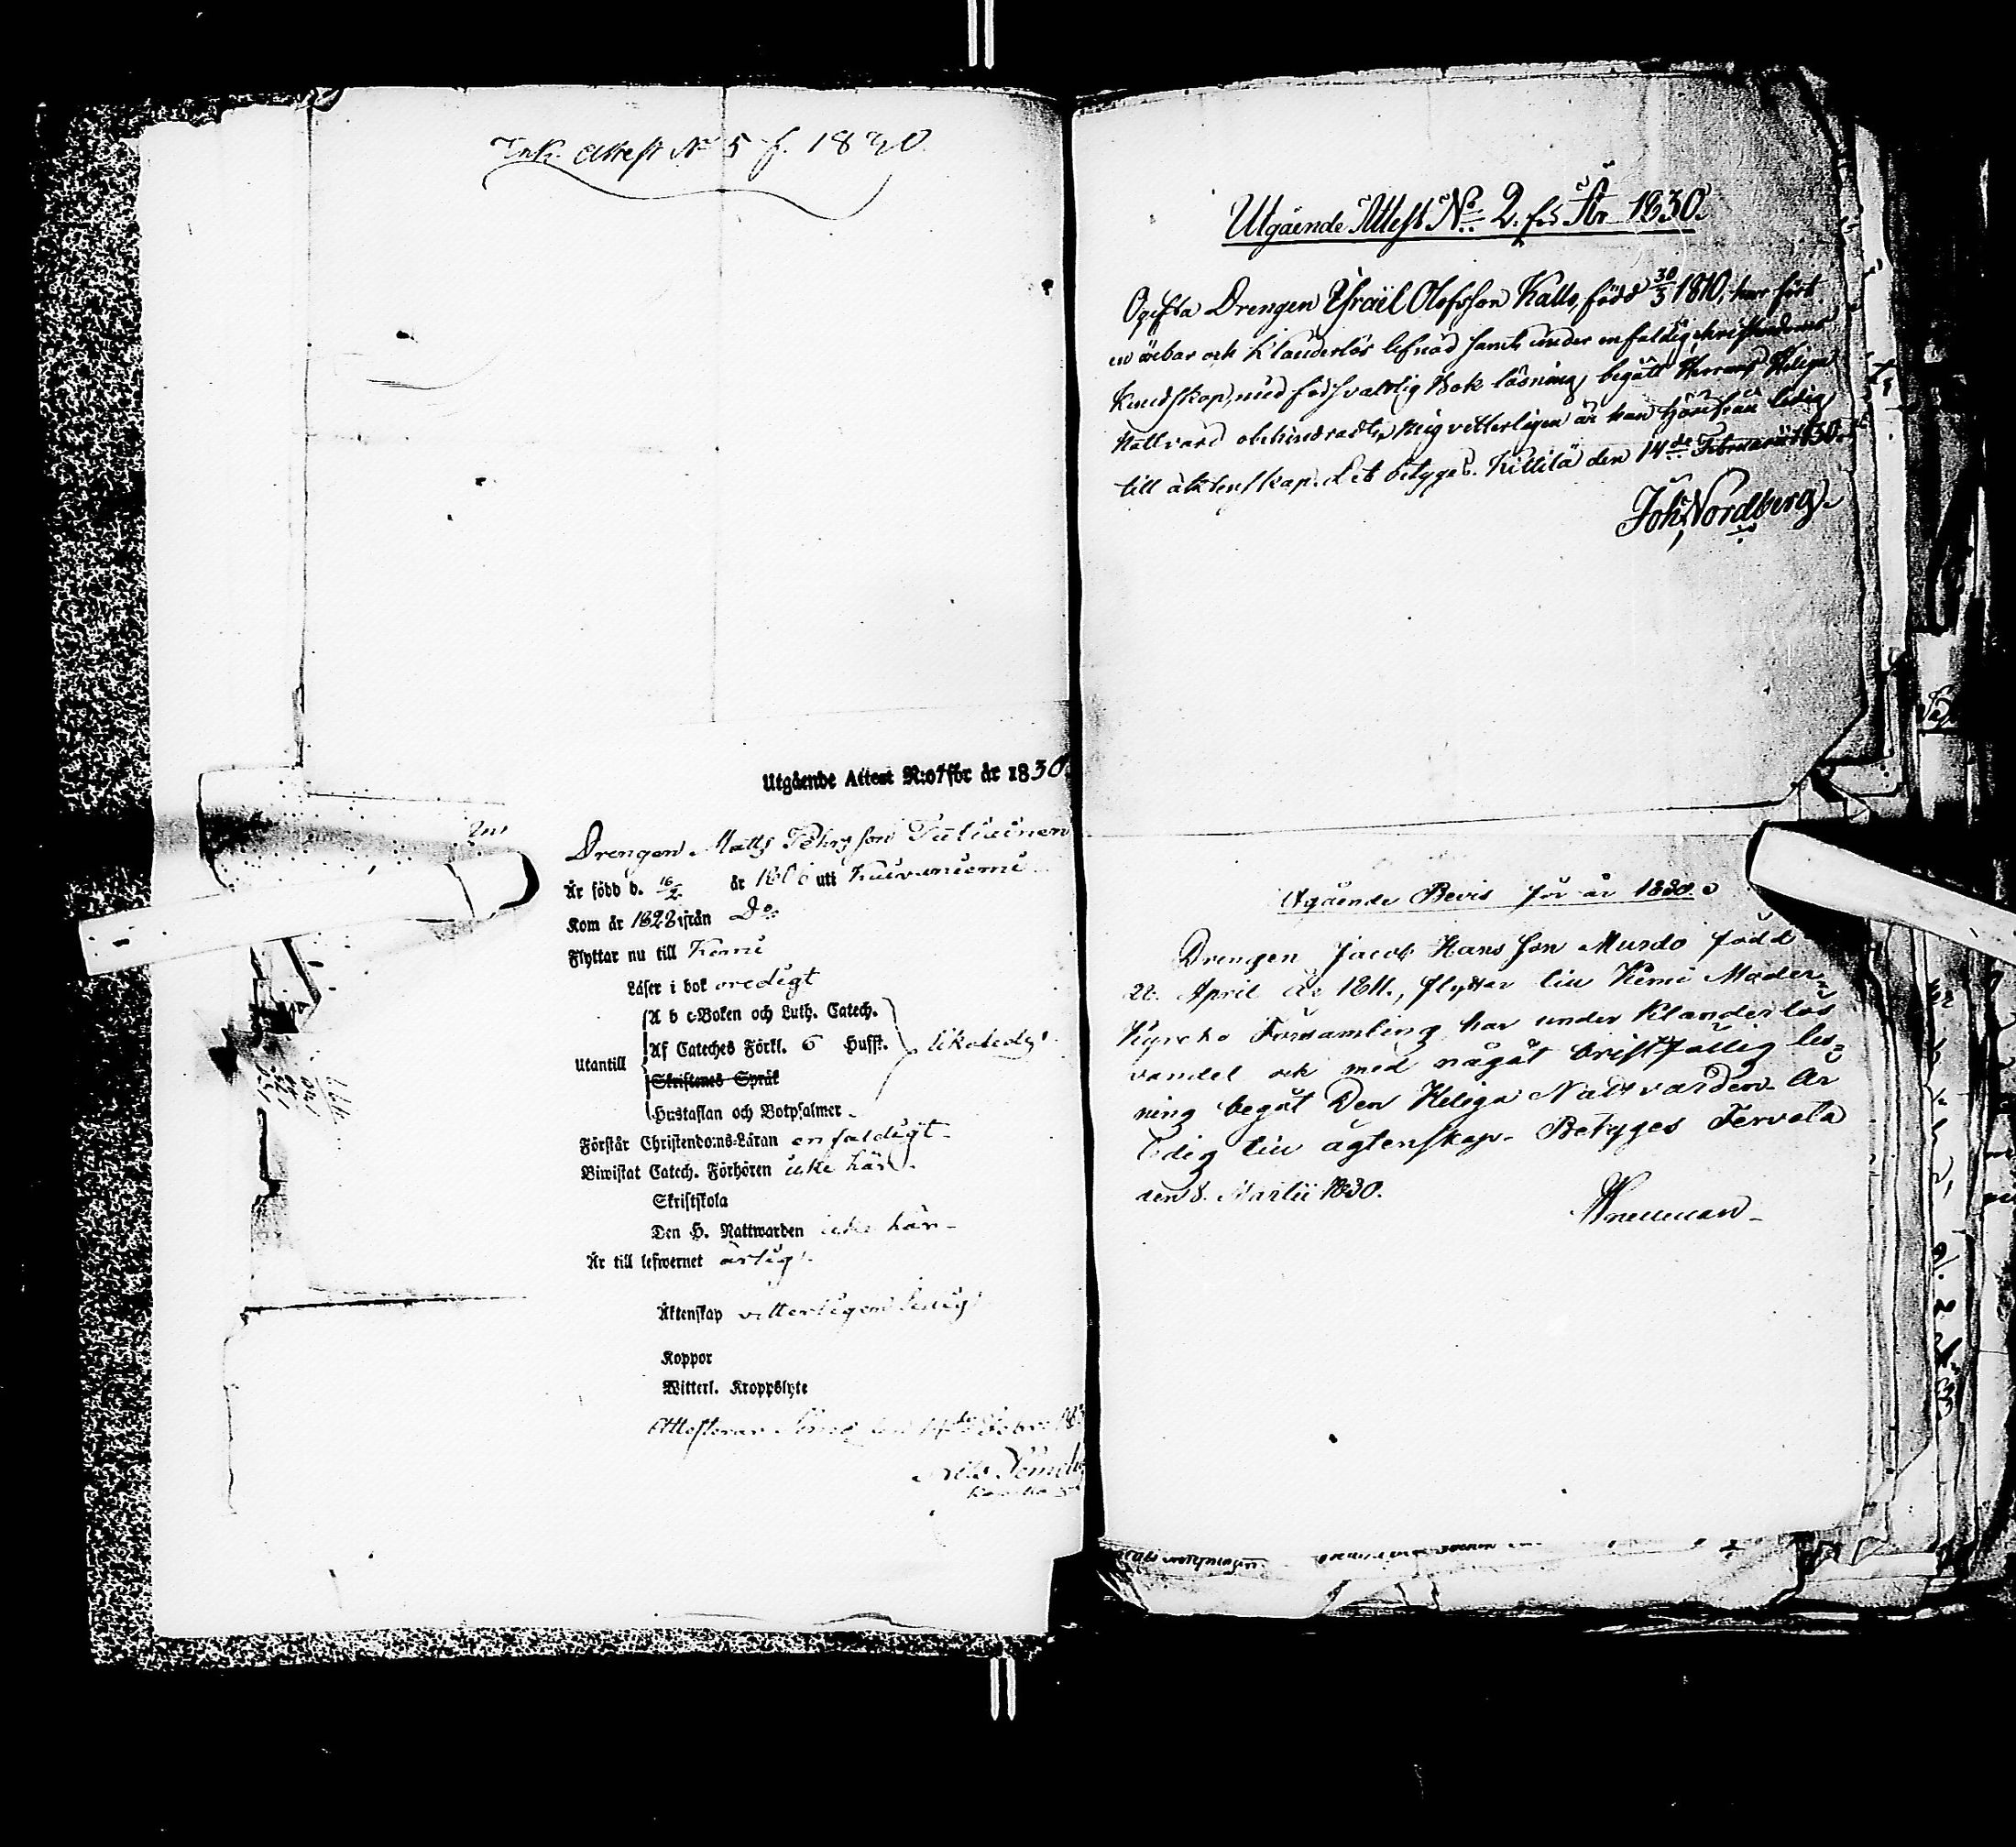 Ink. Attest No 5 f. 1830.
Utgående Attest N:o 1 för år 1830.
Drengen Matts Pehrsson
Är född d. 16/2 år uti Kuivaniemi
Kom år 1828 ifrån D:o
Flyttar nu till Kemi
Läser i bok oredigt
Utantill
A b c-Boken och Luth. Catech.
Af Cateches Förkl. 6 Husst.
likaledes
Skriftenes Språk
Hustaflan och Botpsalmer
Förstår Christendoms-Läran enfaldigt
Biwistat Catech. Förhören icke här
Skriftskola
Den H. Nattwarden icke här
Är till lefwernet ärligt
Äktenskap vitterligen ledig
Koppor
Witterl. Kroppslyte
Attesterar den 14de Febr.
Nils
Utgående Attest No 2. för År 1830.
Ogifta Drengen Israël Olofsson Kallo, född 30/3 1810, har fört
en ärbar och klanderlös lefnad samt under enfaldig christendoms
kundskap, med försvarlig Bok läsning, begått Herrans Heliga
Nattvard obehindradt, Mig vetterligen är han härifrån ledig
till äktenskap. Det betygas. Kittilä den 14de Februarii 1830.
Joh. Nordberg.
Utgående Bevis för år 1830.
Drengen Jacob Hansson Murso född
22. April år 1811, flyttar till Kemi Moder
Kyrcko Församling har under Klanderlös
vandel och med något bristfällig läs-
ning begåt Den Heliga Nattvarden. Är
ledig till ägtenskap. Betyges Tervola
den 8. Martii 1830.